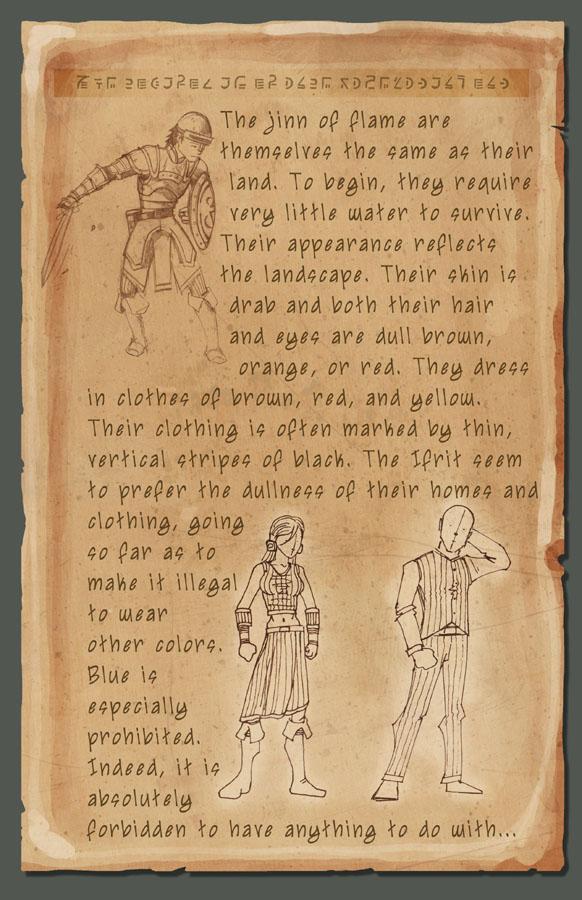 The jinn of flame are
themselves the same as their
land. To begin, they require
very little water to survive.
Their appearance reflects
the landscape. Their skin is
drab and both their hair
and eyes are dull brown,
orange, or red. They dress
in clothes of brown, red, and yellow.
Their clothing is often marked by thin,
vertical stripes of black. The Ifrit seem
to prefer the dullness of their homes and
clothing, going
so far as to
make it illegal
to wear
other colors.
Blue is
especially
prohibited.
Indeed, it is
absolutely
forbidden to have anything to do with...